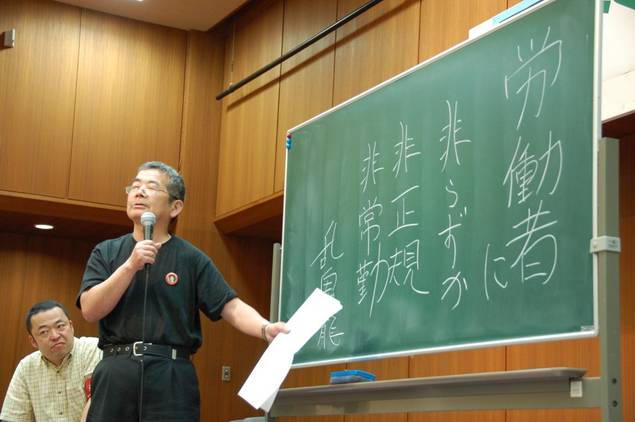 労働者に
非らずか
非正規
非常勤
乱鬼龍